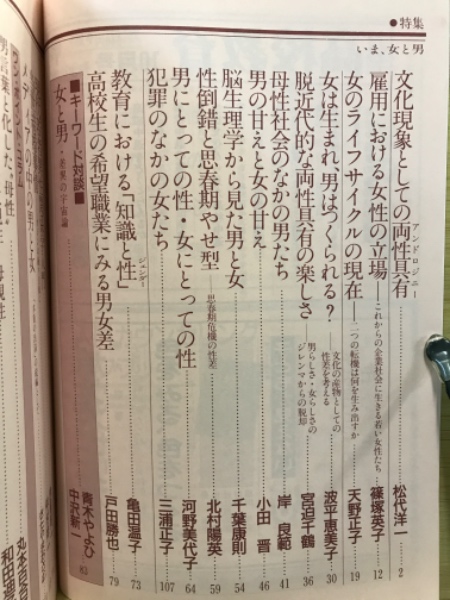 ●特集
いま、女と男
文化現象としての両性具有 アンドロジニー 松代洋一 2
雇用における女性の立場──これからの企業社会に生きる若い女性たち 篠塚英子 12
女のライフサイクルの現在──二つの転機は何を生み出すか 天野正子 19
女は生まれ、男はつくられる?──文化の産物としての性差を考える 波平恵美子 30
脱近代的な両性具有の楽しさ──男らしさ・女らしさのジレンマからの脱却 宮迫千鶴 36
母性社会のなかの男たち 岸良範 41
男の甘えと女の甘え 小田晋 46
脳生理学から見た男と女 千葉康則 54
性倒錯と思春期やせ型──思春期危機の性差 北村陽英 59
男にとっての性・女にとっての性 河野美代子 64
犯罪のなかの女たち 三浦正子 107
教育における「知識と性」 ジェンダー 亀田温子 73
高校生の希望職業にみる男女差 戸田勝也 79
■キーワード対談■
女と男・差異の宇宙論 青木やよひ 中沢新一 83
メディアの中の男と女
男言葉と化した"母性"